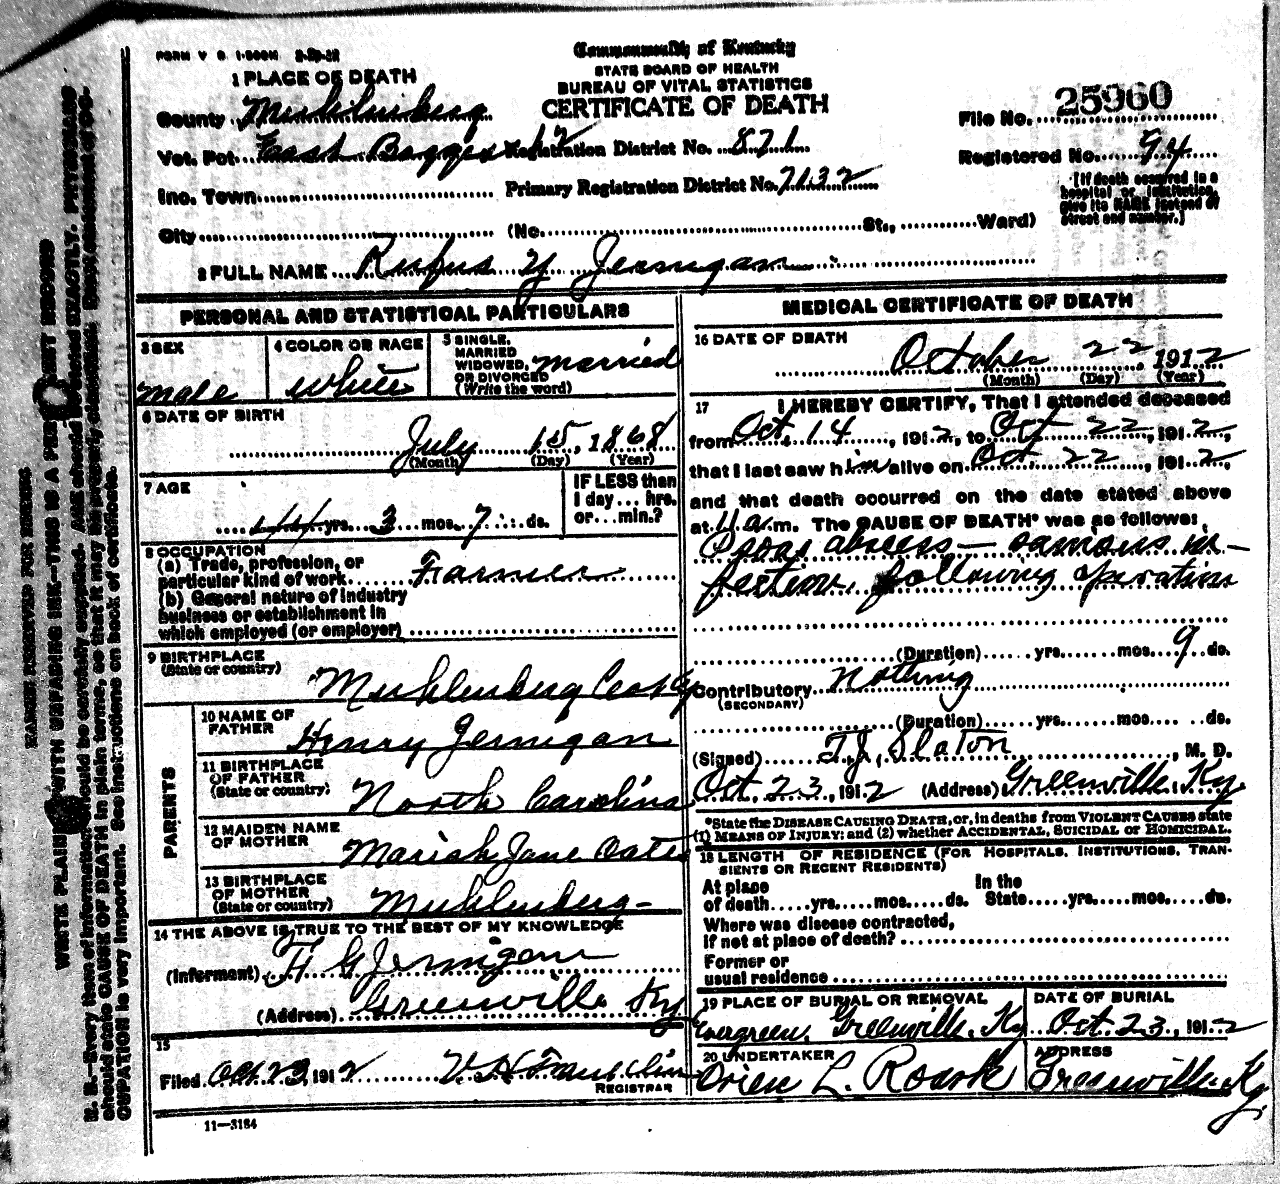 FORM V S 1-500M
Commonwealth of Kentucky
STATE BOARD OF HEALTH
BUREAU OF VITAL STATISTICS
CERTIFICATE OF DEATH
1 PLACE OF DEATH
County Muhlenberg
Vot. Pct. East Boggess 12 Registration District No. 871
Inc. Town Primary Registration District No. 7132
City (No. St., Ward)
File No. 25960
Registered No. 94
[If death occurred in a hospital or institution, give its NAME instead of street and number.]
2 FULL NAME Rufus Y Jernigan
PERSONAL AND STATISTICAL PARTICULARS
3 SEX male
4 COLOR OR RACE white
5 SINGLE, MARRIED WIDOWED, OR DIVORCED (Write the word) married
6 DATE OF BIRTH
July 15, 1868
(Month) (Day) (Year)
7 AGE
44 yrs. 3 mos. 7 ds.
IF LESS than 1 day ... hrs. or ... min.?
8 OCCUPATION
(a) Trade, profession, or particular kind of work Farmer
(b) General nature of industry business or establishment in which employed (or employer)
9 BIRTHPLACE
(State or country)
Muhlenberg Co Ky
PARENTS
10 NAME OF FATHER Henry Jernigan
11 BIRTHPLACE OF FATHER (State or country) North Carolina
12 MAIDEN NAME OF MOTHER Mariah Jane Oates
13 BIRTHPLACE OF MOTHER (State or country) Muhlenberg-
14 THE ABOVE IS TRUE TO THE BEST OF MY KNOWLEDGE
(Informant) H G Jernigan
(Address) Greenville Ky
15
Filed Oct 23, 1912
REGISTRAR
11-3184
MEDICAL CERTIFICATE OF DEATH
16 DATE OF DEATH
October 22, 1912
(Month) (Day) (Year)
17 I HEREBY CERTIFY, That I attended deceased
from Oct 14, 1912, to Oct 22, 1912,
that I last saw him alive on Oct 22, 1912,
and that death occurred on the date stated above
at 4 a.m. The CAUSE OF DEATH* was as follows:
Psoas abscess — in-
fection, following operation
(Duration) yrs. mos. 9 ds.
Contributory Nothing
(SECONDARY)
(Duration) yrs. mos. ds.
(Signed) T.J. Slaton, M. D.
Oct 23, 1912 (Address) Greenville Ky.
*State the DISEASE CAUSING DEATH, or, in deaths from VIOLENT CAUSES state
(1) MEANS OF INJURY; and (2) whether ACCIDENTAL, SUICIDAL OR HOMICIDAL.
18 LENGTH OF RESIDENCE (FOR HOSPITALS, INSTITUTIONS, TRAN-
SIENTS OR RECENT RESIDENTS)
At place of death yrs. mos. ds. In the State yrs. mos. ds.
Where was disease contracted,
If not at place of death?
Former or
usual residence
19 PLACE OF BURIAL OR REMOVAL
Evergreen, Greenville, Ky
DATE OF BURIAL
Oct. 23, 1912
20 UNDERTAKER
Orien L. Roark
ADDRESS
Greenville Ky.
MARGIN RESERVED FOR BINDING
WRITE PLAINLY WITH UNFADING INK—THIS IS A PERMANENT RECORD
N. B.—Every item of information should be carefully supplied. AGE should be stated EXACTLY. PHYSICIANS
should state CAUSE OF DEATH in plain terms, so that it may be properly classified. Exact statement of OC-
CUPATION is very important. See instructions on back of certificate.